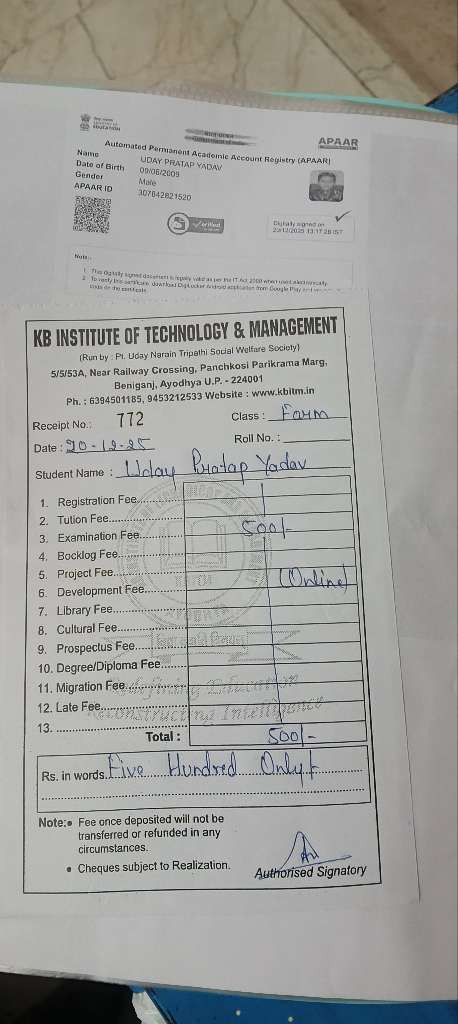 EDUCATION
APAAR
Automated Permanent Academic Account Registry (APAAR)
Name UDAY PRATAP YADAV
Date of Birth 09/06/2009
Gender Male
APAAR ID 307642821520
Verified
Digitally signed on
23/12/2025 13:17:28 IST
Note:-
1. This digitally signed document is legally valid as per the IT Act 2000 when used electronically.
2. To verify this certificate, download DigiLocker Android application from Google Play and
code on the certificate.
KB INSTITUTE OF TECHNOLOGY & MANAGEMENT
(Run by : Pt. Uday Narain Tripathi Social Welfare Society)
5/5/53A, Near Railway Crossing, Panchkosi Parikrama Marg,
Beniganj, Ayodhya U.P. - 224001
Ph. : 6394501185, 9453212533 Website : www.kbitm.in
Receipt No.: 772 Class : Form
Date : 20-12-25 Roll No. :
Student Name : Uday Pratap Yadav
1. Registration Fee
2. Tution Fee
3. Examination Fee 500/-
4. Bocklog Fee
5. Project Fee
6. Development Fee (Online)
7. Library Fee
8. Cultural Fee
9. Prospectus Fee
10. Degree/Diploma Fee
11. Migration Fee
12. Late Fee
13.
Total : 500/-
Redefining Education
Reconstructing Intelligence
Rs. in words Five Hundred Only/
Note:• Fee once deposited will not be
transferred or refunded in any
circumstances.
• Cheques subject to Realization.
Authorised Signatory